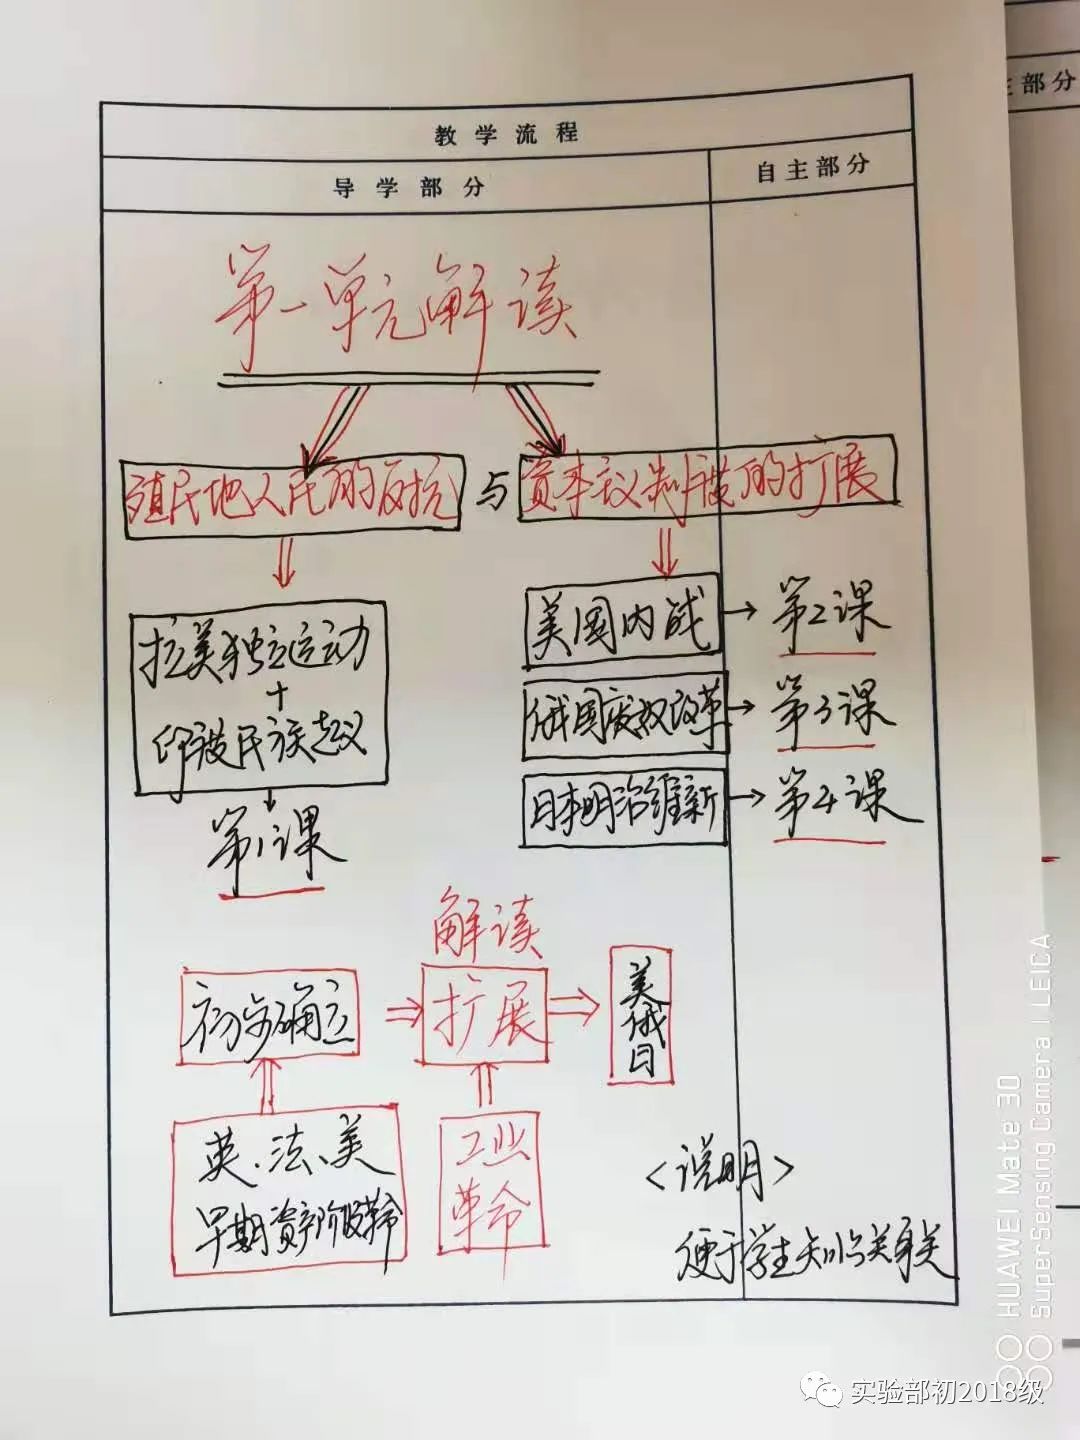 教学流程
导学部分
自主部分
主部分
第一单元解读
殖民地人民的反抗
与
资本主义制度的扩展
拉美独立运动
+
印度民族起义
第1课
美国内战
第2课
俄国废奴改革
第3课
日本明治维新
第4课
解读
初步确立
扩展
美俄日
英、法、美
早期资产阶级革命
工业
革命
<说明>
便于学生知识关联
HUAWEI Mate 30
SuperSensing Camera | LEICA
实验部初2018级